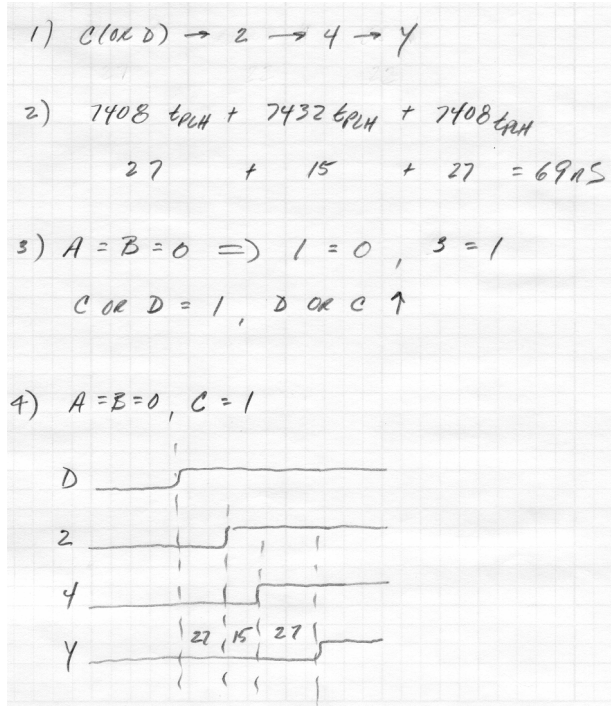 1) C(OR D) → 2 → 4 → Y
2) 7408 tPLH + 7432 tPLH + 7408 tPLH
27 + 15 + 27 = 69nS
3) A = B = 0 => 1 = 0, 3 = 1
C OR D = 1, D OR C ↑
4) A = B = 0, C = 1
D
2
4
27 15 27
Y